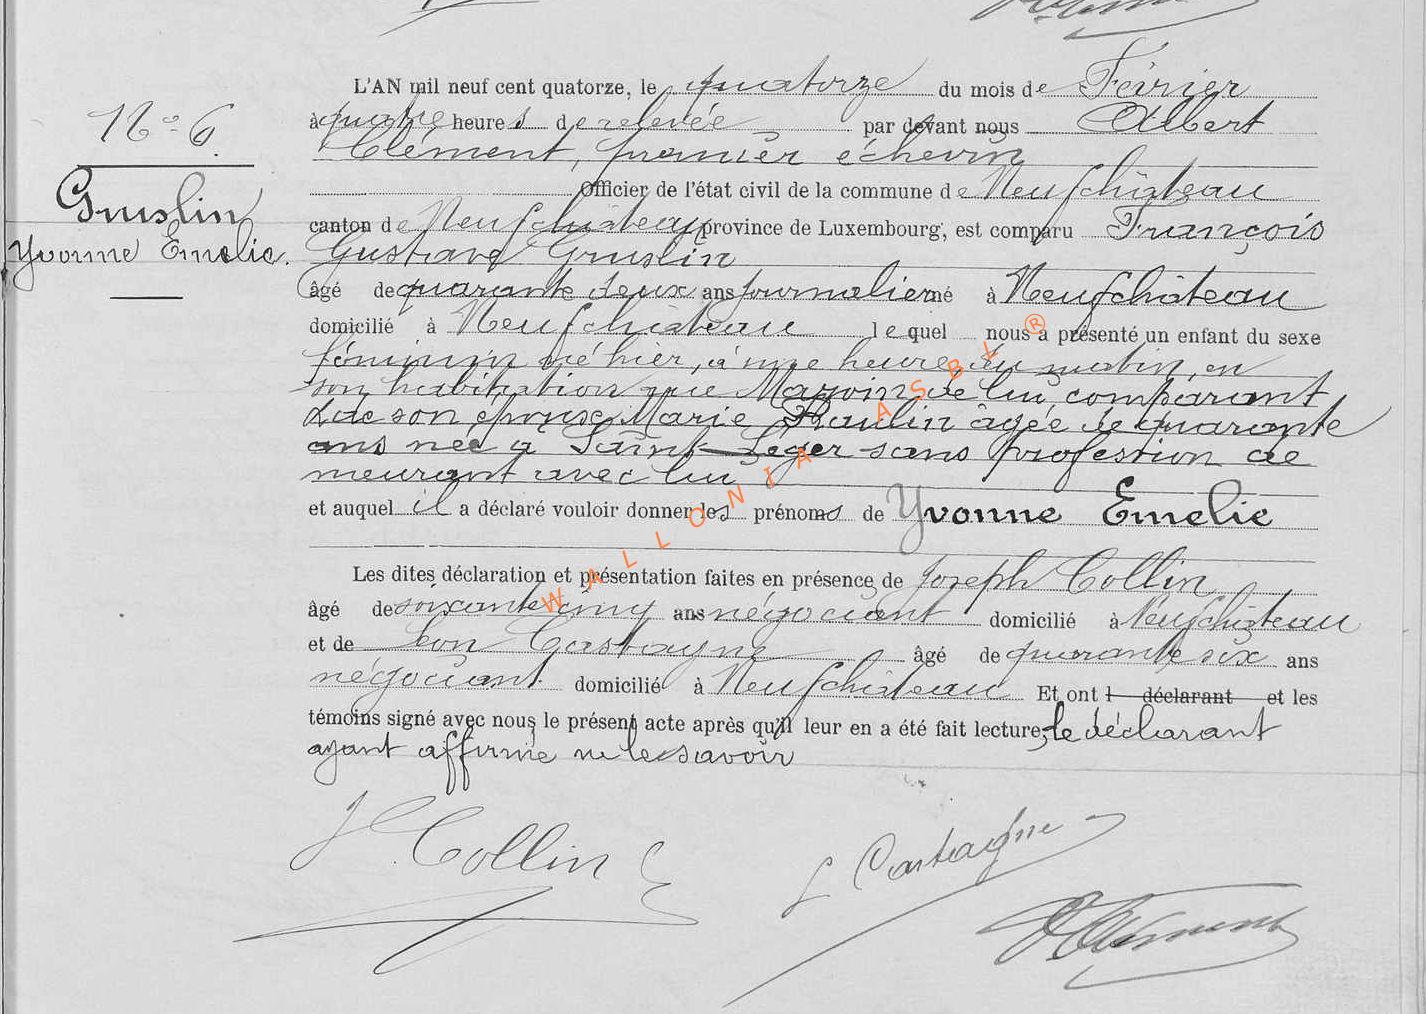 L'AN mil neuf cent quatorze, le quatorze du mois de Février
N° 6
à quatre heures de relevée par devant nous Albert
Clément, premier échevin
Officier de l'état civil de la commune de Neufchâteau
Gruslin
canton de Neufchâteau province de Luxembourg, est comparu François
Yvonne Emelie.
Gustave Gruslin
âgé de quarante deux ans journalier né à Neufchâteau
domicilié à Neufchâteau lequel nous a présenté un enfant du sexe
féminin né hier, à une heure du matin, en
son habitation rue de lui comparant
& de son épouse Marie Paulin âgée de quarante
ans née à Saint-Léger sans profession de
meurant avec lui
et auquel il a déclaré vouloir donner les prénoms de Yvonne Emelie
Les dites déclaration et présentation faites en présence de Joseph Collin
âgé de soixante cinq ans négociant domicilié à Neufchâteau
et de Léon Castaigne âgé de quarante six ans
négociant domicilié à Neufchâteau Et ont l déclarant et les
témoins signé avec nous le présent acte après qu'il leur en a été fait lecture, le déclarant
ayant affirmé ne le savoir
J Collin
L Castaigne
A Clément
WALLONIA ASBL ®